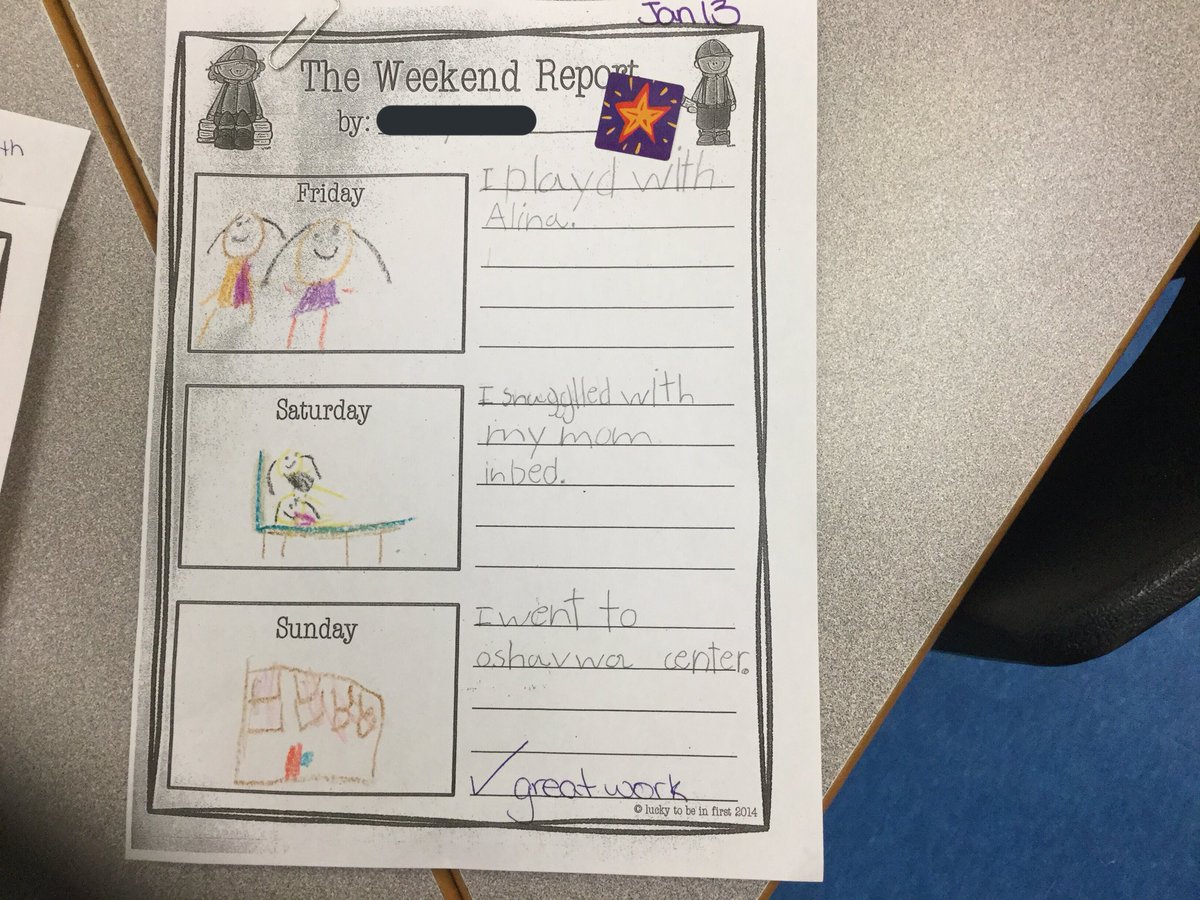 Jan 13
The Weekend Report
by:
th
Friday
I playd with
Alina.
Saturday
I snugglled with
my mom
in bed.
Sunday
I went to
oshavwa center.
✓ great work
© lucky to be in first 2014